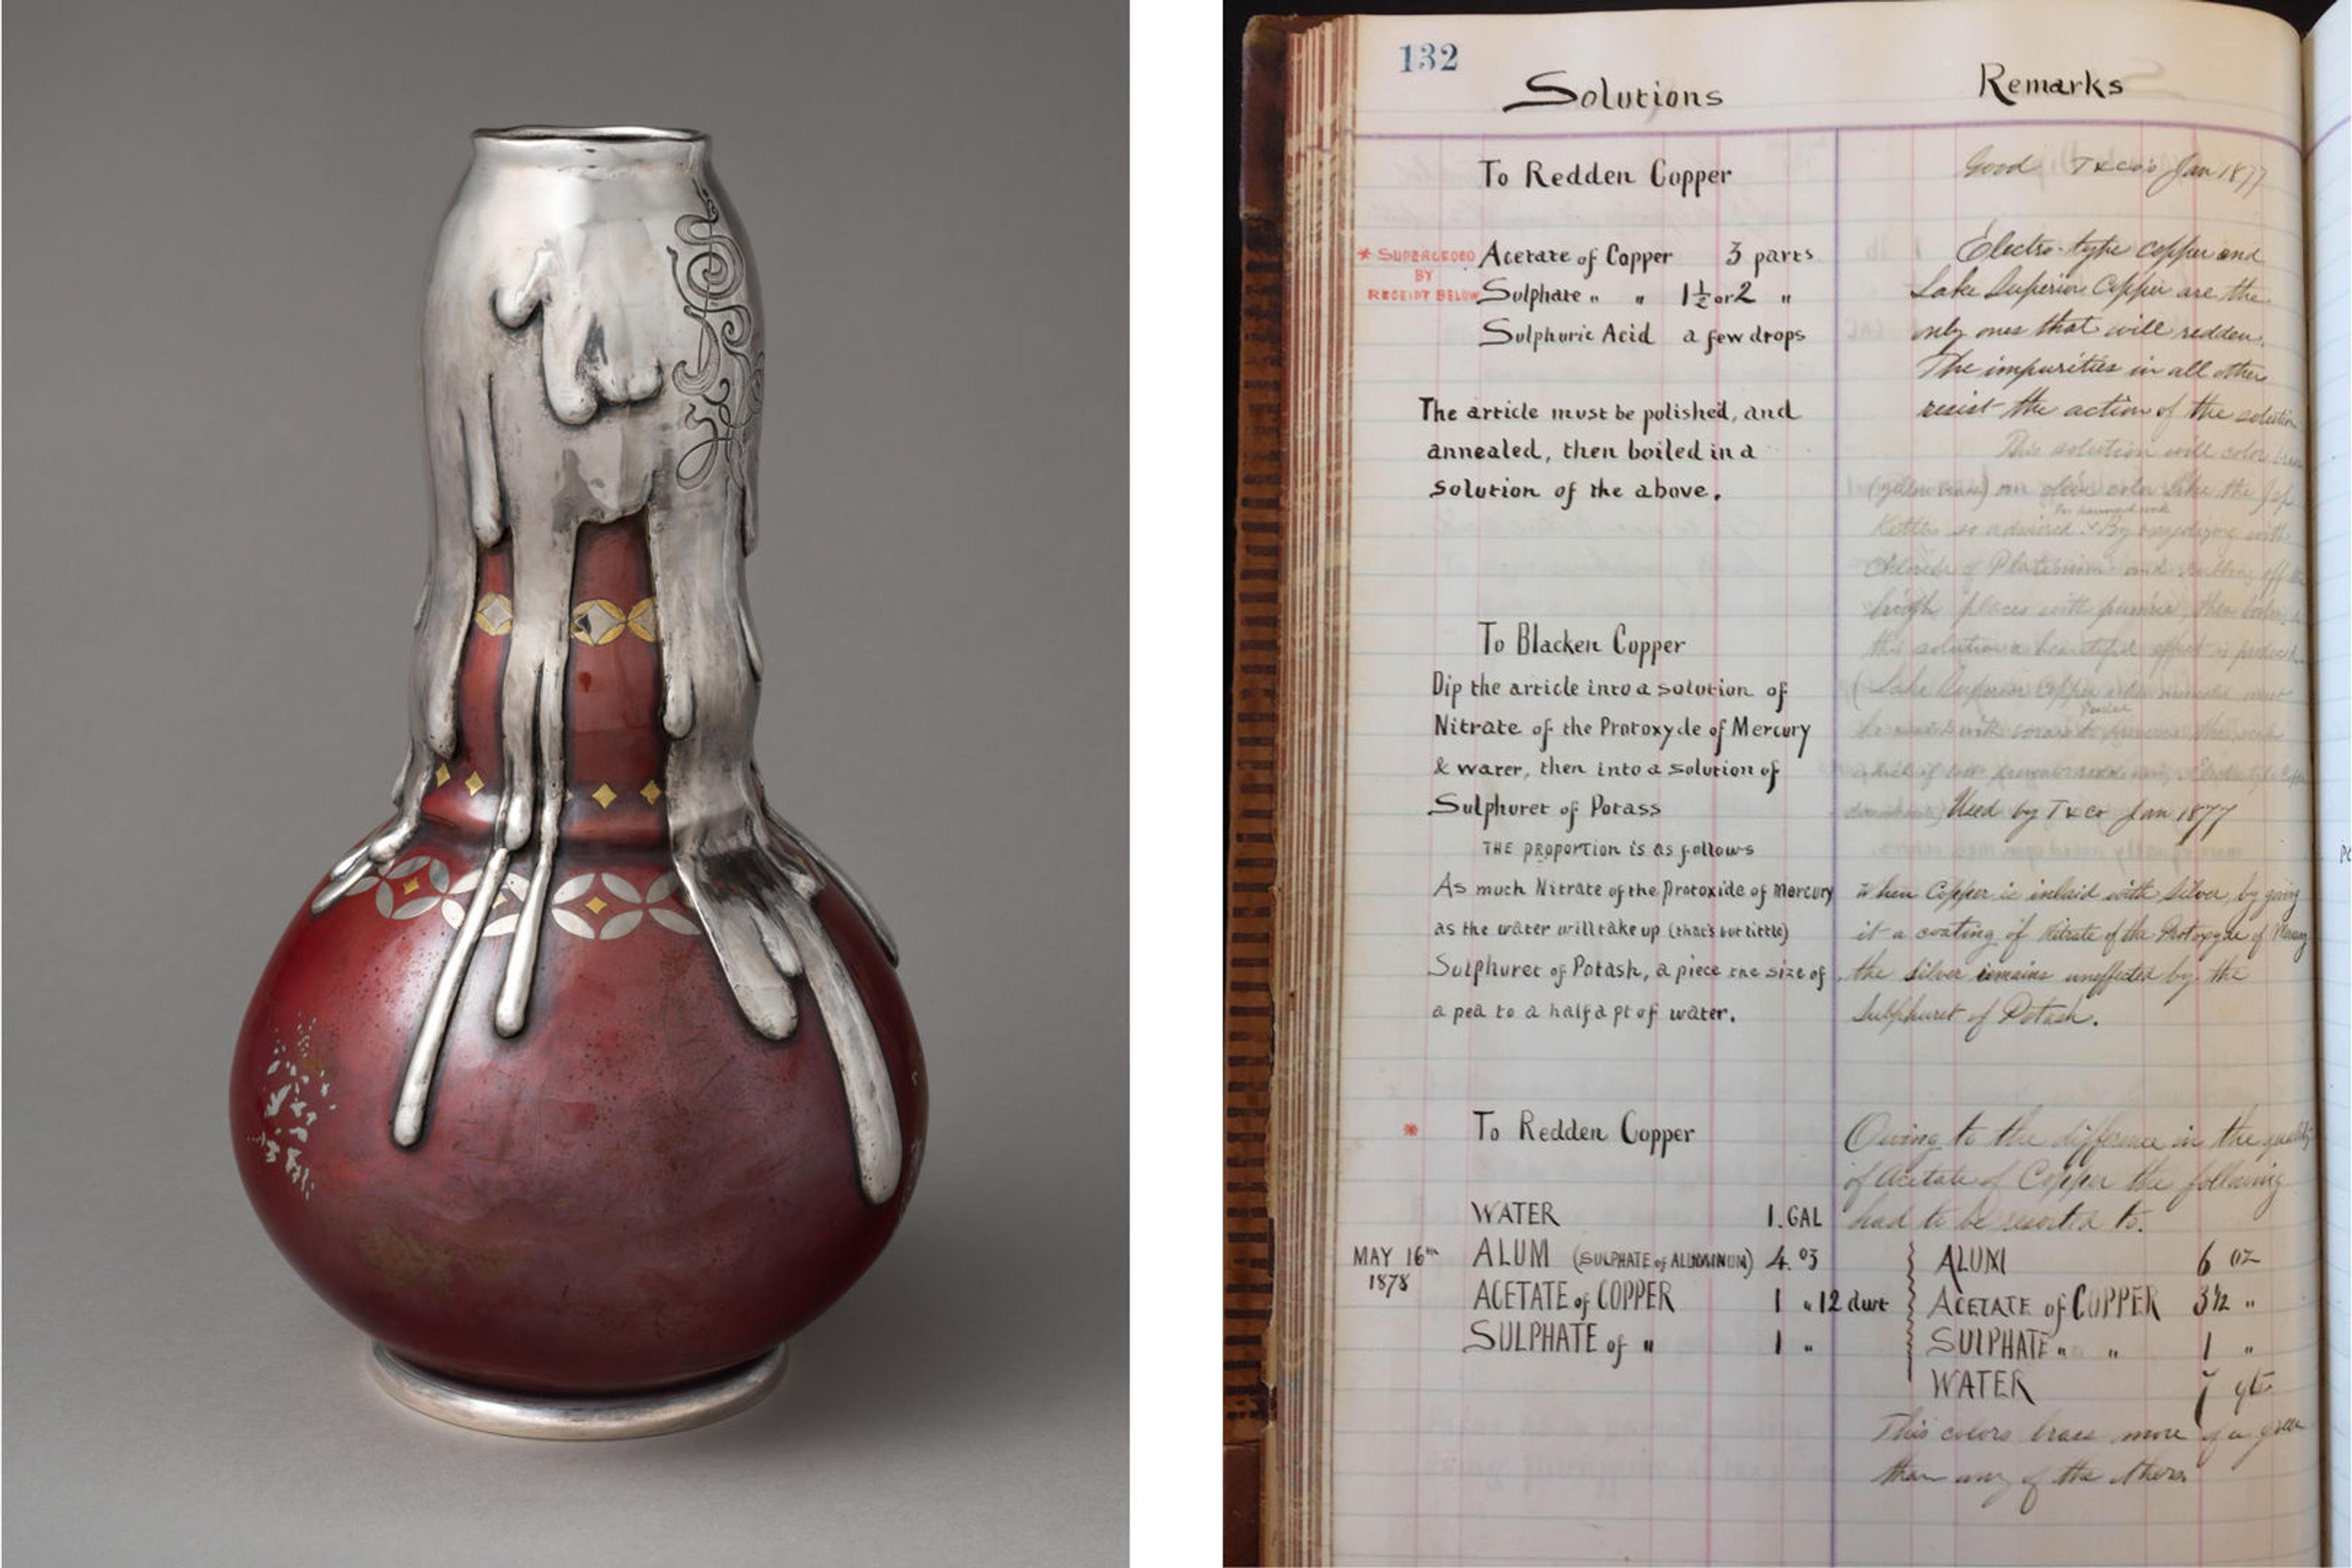 132
Solutions
Remarks
To Redden Copper
Good T & Co's Jan 1877
* SUPERCEDED
BY
RECEIPT BELOW
Acetate of Copper 3 parts
Sulphate " " 1½ or 2 "
Sulphuric Acid a few drops
Electro-type copper and
Lake Superior Copper are the
only ones that will redden.
The impurities in all others
resist the action of the solution
The article must be polished, and
annealed, then boiled in a
solution of the above.
This solution will color
(yellow brass) an olive color like the
Kettles so admired. By oxydizing with
Chloride of Platinum and rubbing off
places with pumice, then
this solution a beautiful effect is produced
(Lake Superior Copper when must
be with borax to the
To Blacken Copper
Dip the article into a solution of
Nitrate of the Protoxyde of Mercury
& water, then into a solution of
Sulphuret of Potass
THE PROPORTION is as follows
As much Nitrate of the Protoxide of Mercury
as the water will take up (that's but little)
Sulphuret of Potash, a piece the size of
a pea to a half a pt of water.
Used by T & Co Jan 1877
When Copper is inlaid with silver by giving
it a coating of Nitrate of the Protoxyde of
the silver remains uneffected by the
Sulphuret of Potash.
* To Redden Copper
Owing to the difference in the quality
of Acetate of Copper the following
had to be resorted to.
WATER 1. GAL
MAY 16th
1878
ALUM (SULPHATE of ALUMINUM) 4. oz
ACETATE of COPPER 1 " 12 dwt
SULPHATE of " 1 "
ALUM 6 oz
ACETATE of COPPER 3½ "
SULPHATE " " 1 "
WATER 7 qts
This colors brass more of a green
than any of the others